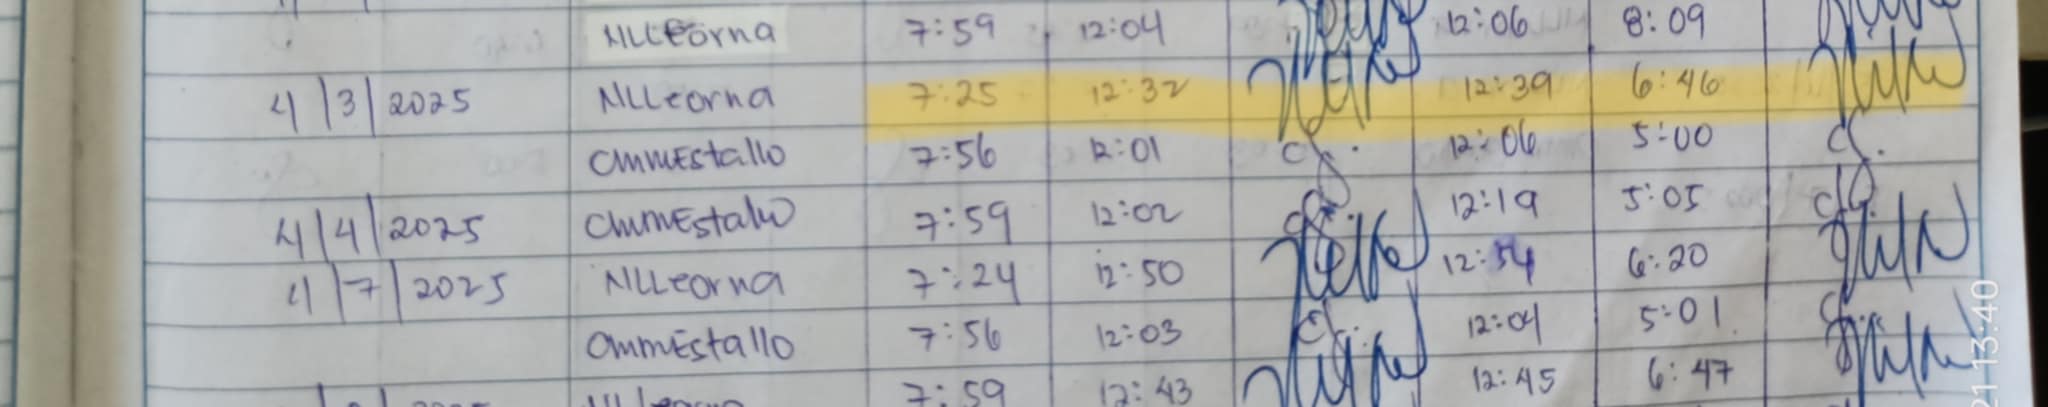 NLLeorna 7:59 12:04 12:06 8:09
4/3/2025 NLLeorna 7:25 12:32 12:39 6:46
CMMEstallo 7:56 12:01 12:06 5:00
4/4/2025 CMMEstallo 7:59 12:02 12:19 5:05
4/7/2025 NLLeorna 7:24 12:50 12:54 6:20
CMMEstallo 7:56 12:03 12:04 5:01
7:59 12:43 12:45 6:47
21 13:40